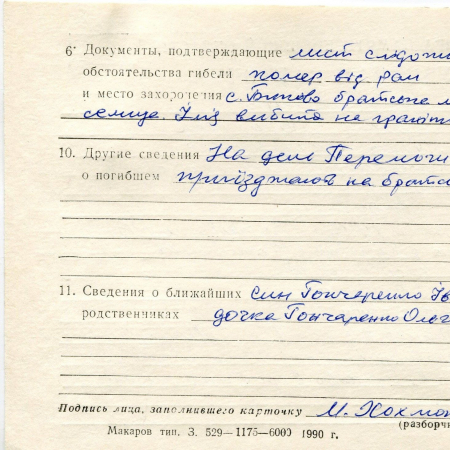 6· Документы, подтверждающие лист
обстоятельства гибели помер від ран
и место захоронения с. Биково братське
вибито на
10. Другие сведения На день Перемоги
о погибшем приїзджають на
11. Сведения о ближайших син Гончаренко Ів
родственниках дочка Гончаренко Ольг
Подпись лица, заполнившего карточку М.
(разборч
Макаров тип. З. 529—1175—6000 1990 г.